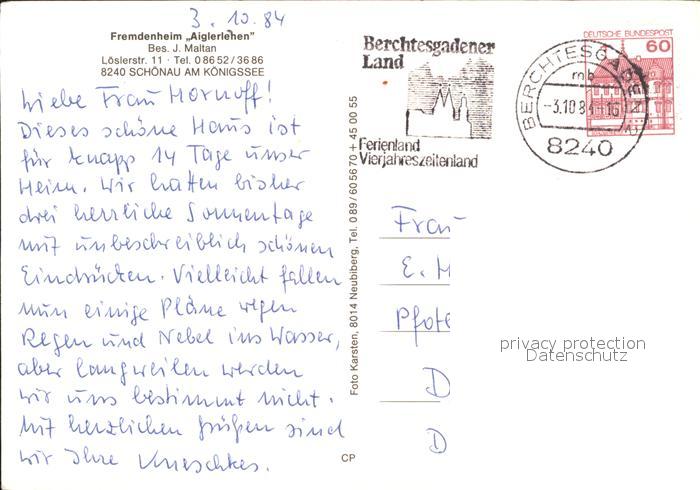 3. 10. 84
Fremdenheim „Aiglerlehen"
Bes. J. Maltan
Löslerstr. 11 · Tel. 0 86 52 / 36 86
8240 SCHÖNAU AM KÖNIGSSEE
Liebe Frau Hornoff!
Dieses schöne Haus ist
für knapp 14 Tage unser
Heim. Wir hatten bisher
drei herrliche Sonnentage
mit unbeschreiblich schönen
Eindrücken. Vielleicht fallen
nun einige Pläne wegen
Regen und Nebel ins Wasser,
aber langweilen werden
wir uns bestimmt nicht.
Mit herzlichen Grüßen sind
wir Ihre Knieschkes.
Foto Karsten, 8014 Neubiberg, Tel. 0 89 / 60 56 70 + 45 00 55
CP
Berchtesgadener
Land
Ferienland
Vierjahreszeitenland
BERCHTESGADEN 1
mb
-3.10.84-16
8240
DEUTSCHE BUNDESPOST
60
Frau
E. H
Pfote
D
D
privacy protection
Datenschutz